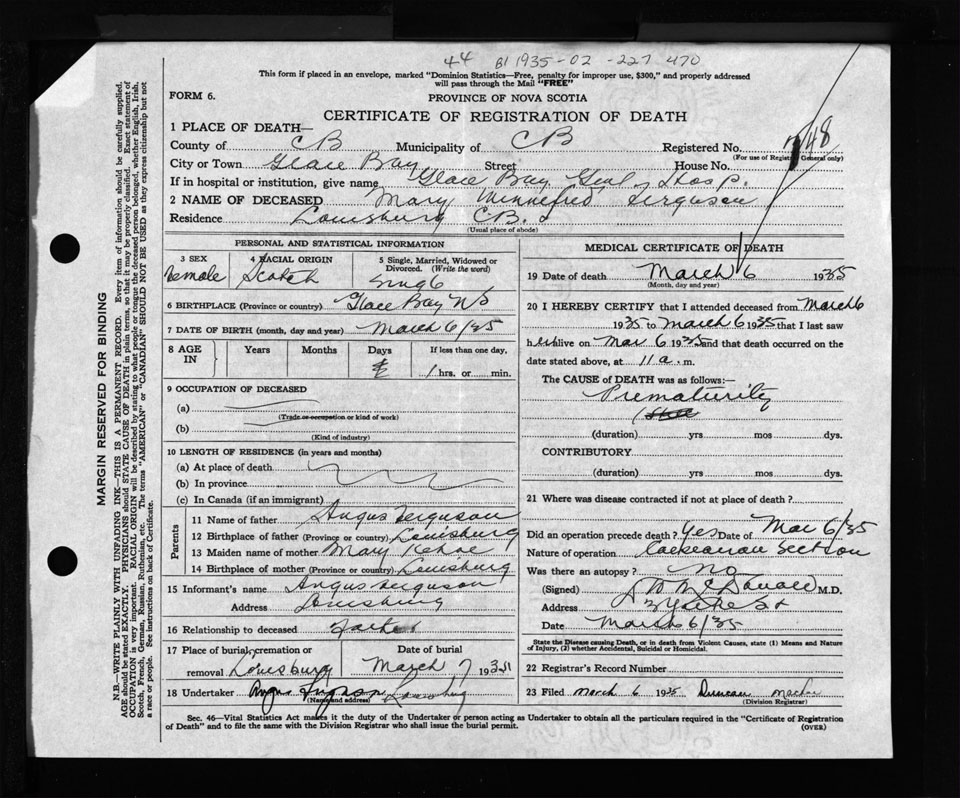 44 B1 1935-02-227 470
This form if placed in an envelope, marked "Dominion Statistics—Free, penalty for improper use, $300," and properly addressed
will pass through the Mail "FREE"
FORM 6.
PROVINCE OF NOVA SCOTIA
CERTIFICATE OF REGISTRATION OF DEATH
1 PLACE OF DEATH—
County of CB Municipality of CB Registered No. 48
(For use of Registrar General only)
City or Town Glace Bay Street House No.
If in hospital or institution, give name Glace Bay Genl Hosp.
2 NAME OF DECEASED Mary Winnefred Ferguson
Residence Louisburg CB.
(Usual place of abode)
PERSONAL AND STATISTICAL INFORMATION
3 SEX 4 RACIAL ORIGIN 5 Single, Married, Widowed or
Divorced. (Write the word)
Female Scotch Single
6 BIRTHPLACE (Province or country) Glace Bay NS
7 DATE OF BIRTH (month, day and year) March 6/35
8 AGE IN Years Months Days If less than one day,
1 hrs. or min.
9 OCCUPATION OF DECEASED
(a)
(Trade or occupation or kind of work)
(b)
(Kind of industry)
10 LENGTH OF RESIDENCE (in years and months)
(a) At place of death
(b) In province
(c) In Canada (if an immigrant)
Parents
11 Name of father Angus Ferguson
12 Birthplace of father (Province or country) Louisburg
13 Maiden name of mother Mary Kehoe
14 Birthplace of mother (Province or country) Louisburg
15 Informant's name Angus Ferguson
Address Louisburg
16 Relationship to deceased Father
17 Place of burial, cremation or Date of burial
removal Louisburg March 7 1935
18 Undertaker Angus Ferguson Louisburg
(Name and address)
MEDICAL CERTIFICATE OF DEATH
19 Date of death March 6 1935
(Month, day and year)
20 I HEREBY CERTIFY that I attended deceased from March 6
1935 to March 6 1935 that I last saw
h er alive on Mar 6 1935 and that death occurred on the
date stated above, at 11 a. m.
The CAUSE of DEATH was as follows:—
Prematurity
(duration) yrs mos dys.
CONTRIBUTORY
(duration) yrs mos dys.
21 Where was disease contracted if not at place of death?
Did an operation precede death? Yes Date of Mar 6/35
Nature of operation Caesarean Section
Was there an autopsy? No
(Signed) M.D.
Address
Date March 6/35
State the Disease causing Death, or in death from Violent Causes, state (1) Means and Nature
of Injury, (2) whether Accidental, Suicidal or Homicidal.
22 Registrar's Record Number
23 Filed March 6 1935 Duncan
(Division Registrar)
Sec. 46—Vital Statistics Act makes it the duty of the Undertaker or person acting as Undertaker to obtain all the particulars required in the "Certificate of Registration
of Death" and to file the same with the Division Registrar who shall issue the burial permit.
(OVER)
MARGIN RESERVED FOR BINDING
N.B.—WRITE PLAINLY WITH UNFADING INK—THIS IS A PERMANENT RECORD. Every item of information should be carefully supplied.
AGE should be stated EXACTLY. PHYSICIANS should STATE CAUSE OF DEATH in plain terms, so that it may be properly classified. Exact statement of
OCCUPATION is very important. RACIAL ORIGIN will be described by stating to what people or tongue the deceased person belonged, whether English, Irish,
Scotch, French, German, Russian, Ruthenian, etc. The terms "AMERICAN" or "CANADIAN" SHOULD NOT BE USED as they express citizenship but not
a race or people. See instructions on back of Certificate.